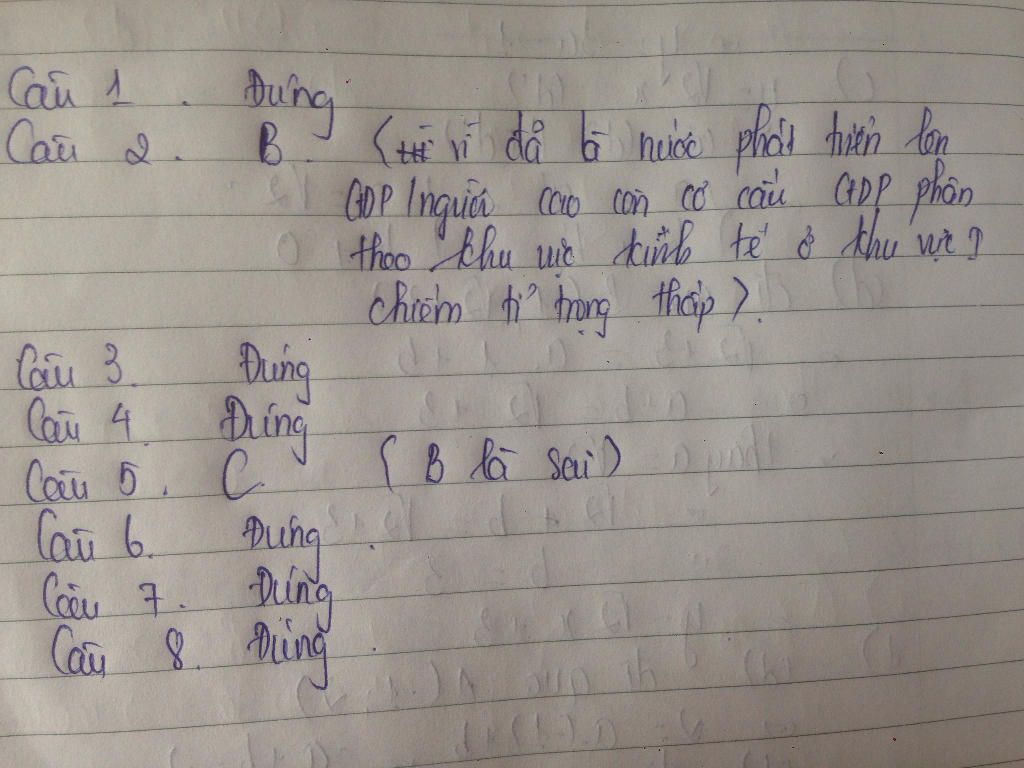 Câu 1. Đúng
Câu 2. B. (vì đã là nước phát triển lên
GDP/người cao còn cơ cấu GDP phân
theo khu vực kinh tế ở khu vực I
chiếm tỉ trọng thấp).
Câu 3. Đúng
Câu 4. Đúng
Câu 5. C. (B là sai)
Câu 6. Đúng.
Câu 7. Đúng
Câu 8. Đúng.